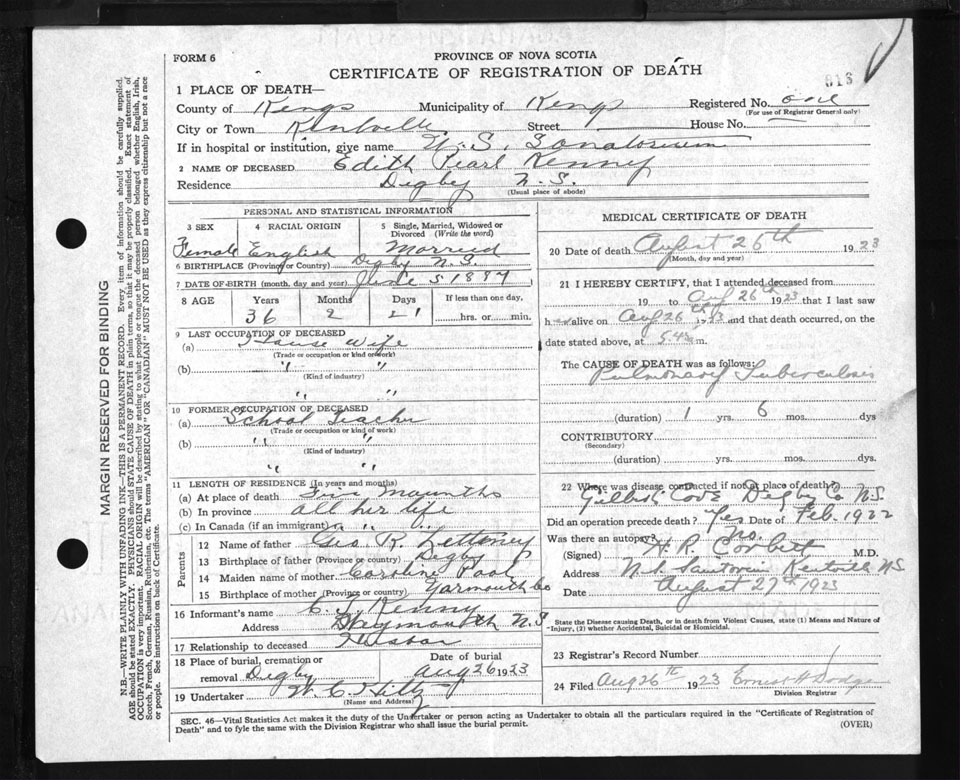 FORM 6
PROVINCE OF NOVA SCOTIA
CERTIFICATE OF REGISTRATION OF DEATH
013
1 PLACE OF DEATH—
County of Kings Municipality of Kings Registered No. one
(For use of Registrar General only)
City or Town Kentville Street House No.
If in hospital or institution, give name N.S. Sonatorium
2 NAME OF DECEASED Edith Pearl Kenney
Residence Digby N.S.
(Usual place of abode)
PERSONAL AND STATISTICAL INFORMATION
3 SEX 4 RACIAL ORIGIN 5 Single, Married, Widowed or Divorced (Write the word)
Female English Married
6 BIRTHPLACE (Province or Country) Digby N.S.
7 DATE OF BIRTH (month, day and year) June 5 1887
8 AGE Years Months Days If less than one day,
36 2 21 hrs. or min.
9 LAST OCCUPATION OF DECEASED
(a) House Wife
(Trade or occupation or kind of work)
(b) " "
(Kind of industry)
" "
10 FORMER OCCUPATION OF DECEASED
(a) School Teacher
(Trade or occupation or kind of work)
(b) " "
(Kind of industry)
" "
11 LENGTH OF RESIDENCE (In years and months)
(a) At place of death
(b) In province all her life
(c) In Canada (if an immigrant) " "
Parents
12 Name of father Geo. R. Letteney
13 Birthplace of father (Province or country) Digby
14 Maiden name of mother Pool
15 Birthplace of mother (Province or Country) Yarmouth Co
16 Informant's name Kenny
Address Weymouth N S
17 Relationship to deceased Husban
18 Place of burial, cremation or removal Digby Date of burial Aug 26 1923
19 Undertaker W C Hiltz
(Name and Address)
MEDICAL CERTIFICATE OF DEATH
20 Date of death August 26th 1923
(Month, day and year)
21 I HEREBY CERTIFY, that I attended deceased from
19 to Aug 26th 1923 that I last saw
h er alive on Aug 26th 1923 and that death occurred, on the
date stated above, at 5.45 m.
The CAUSE OF DEATH was as follows:
Pulmonary Tuberculosis
(duration) 1 yrs. 6 mos. dys
CONTRIBUTORY
(Secondary)
(duration) yrs. mos. dys.
22 Where was disease contracted if not at place of death?
Gilbert Cove Digby Co N.S.
Did an operation precede death? Yes Date of Feb. 1922
Was there an autopsy? No.
(Signed) H. R. Corbett M.D.
Address N.S. Sanitorium Kentville N.S
Date August 27th 1923
State the Disease causing Death, or in death from Violent Causes, state (1) Means and Nature of Injury, (2) whether Accidental, Suicidal or Homicidal.
23 Registrar's Record Number
24 Filed Aug 26th 1923 Ernest H Dodge
Division Registrar
SEC. 46—Vital Statistics Act makes it the duty of the Undertaker or person acting as Undertaker to obtain all the particulars required in the "Certificate of Registration of
Death" and to fyle the same with the Division Registrar who shall issue the burial permit.
(OVER)
MARGIN RESERVED FOR BINDING
N.B.—WRITE PLAINLY WITH UNFADING INK—THIS IS A PERMANENT RECORD. Every item of information should be carefully supplied.
AGE should be stated EXACTLY. PHYSICIANS should STATE CAUSE OF DEATH in plain terms, so that it may be properly classified. Exact statement of
OCCUPATION is very important. RACIAL ORIGIN will be described by stating to what people or tongue the deceased person belonged whether English, Irish,
Scotch, French, German, Russian, Ruthenian, etc. The terms "AMERICAN" OR "CANADIAN" MUST NOT BE USED as they express citizenship but not a race
or people. See instructions on back of Certificate.